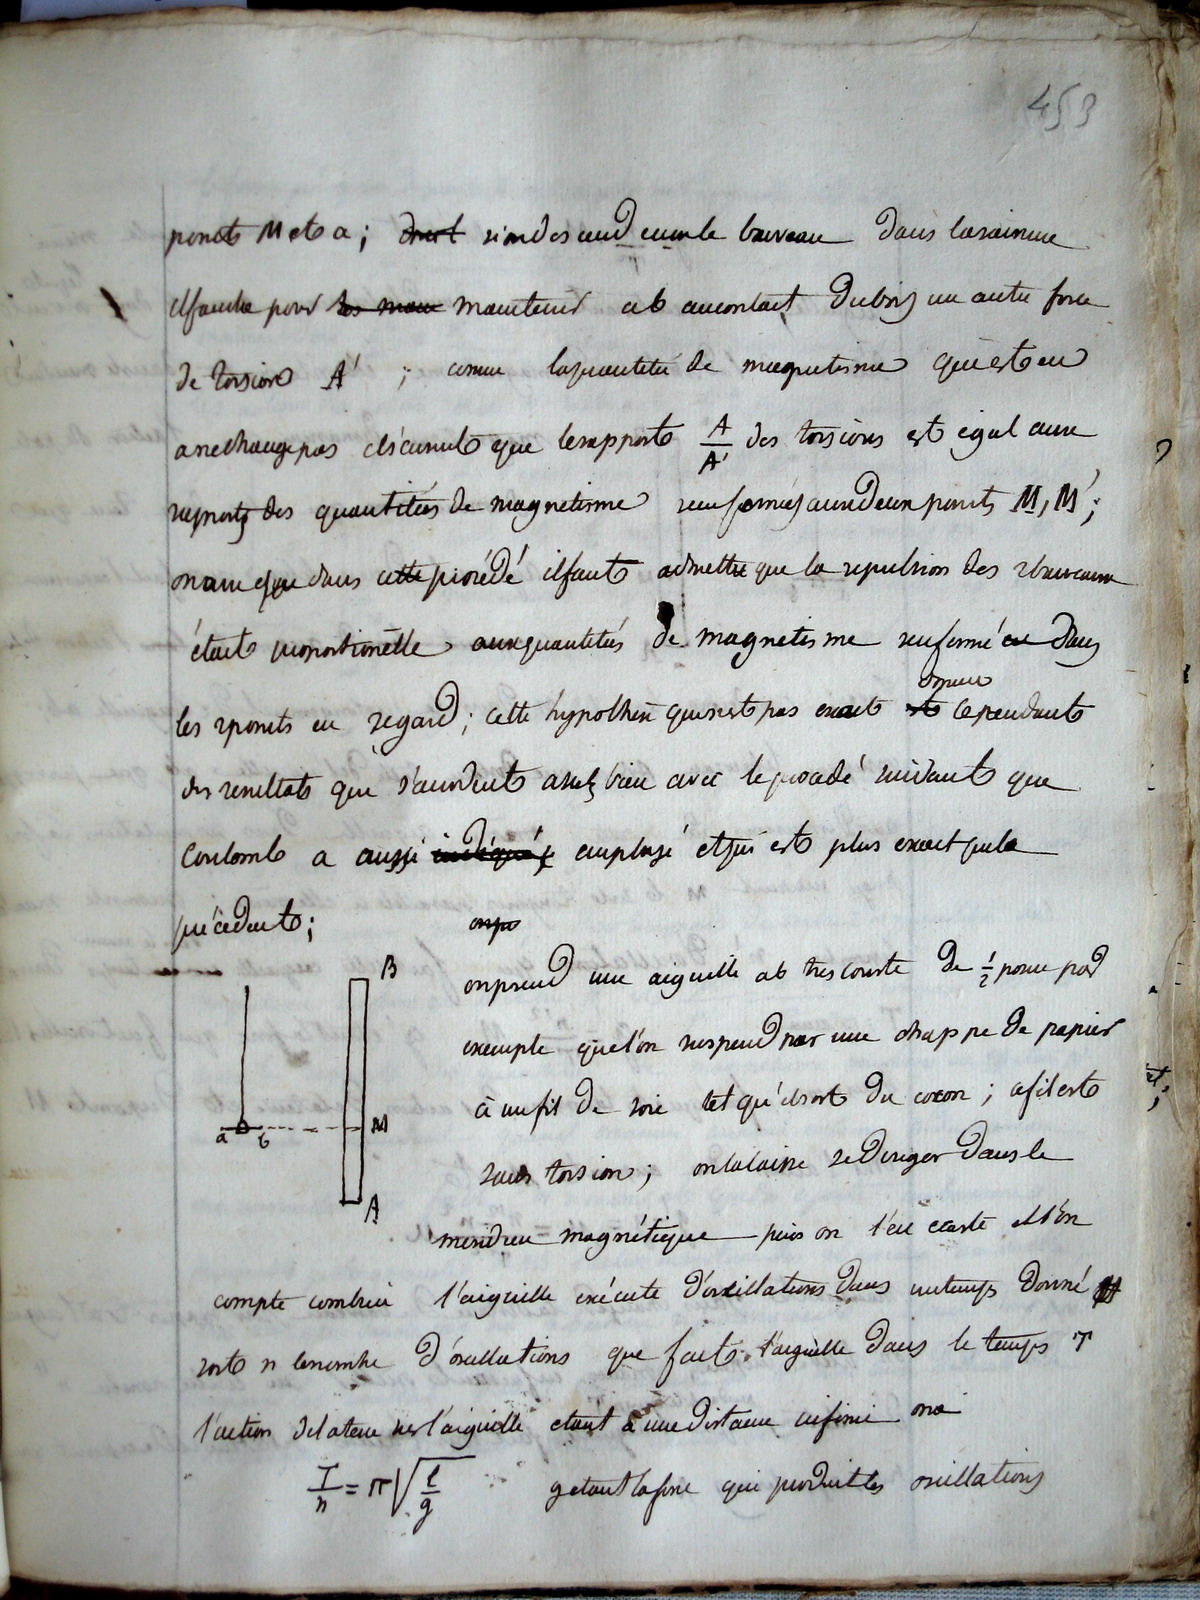 453
points M et a ; si on descend ensuite le barreau dans la rainure
il faudra pour maintenir ab au contact du bois un autre force
de torsion A' ; comme la quantité de magnetisme qui est en
a ne change pas il s'ensuit que le rapport A/A' des torsions est egal au
rapport des quantités de magnetisme renfermés aux deux points M, M' ;
on a vu que dans cette procédé il faut admettre que la repulsion des 2 barreaux
était proportionelle aux quantités de magnetisme renfermé dans
les 2 points en regard ; cette hypothese qui n'est pas exacte cependant
des resultats que s'accordent assez bien avec le procedé suivant que
Coulomb a aussi employé et qui est plus exact que le
précédent ;
onpr
B
on prend une aiguille ab tres courte de 1/2 pouce par
exemple que l'on suspend par une chappe de papier
à un fil de soie tel qu'il sort du cocon ; ce fil est
a b M
sans torsion ; on la laisse se diriger dans le
A
méridien magnétique puis on l'en ecarte et l'on
compte combien l'aiguille exécute d'oscillations dans un temps donné
soit n le nombre d'oscillations que fait l'aiguille dans le temps T
l'action de la terre sur l'aiguille etant à une distance infinie on a
T/n = π√(l/g) g etant la force qui produit les oscillations